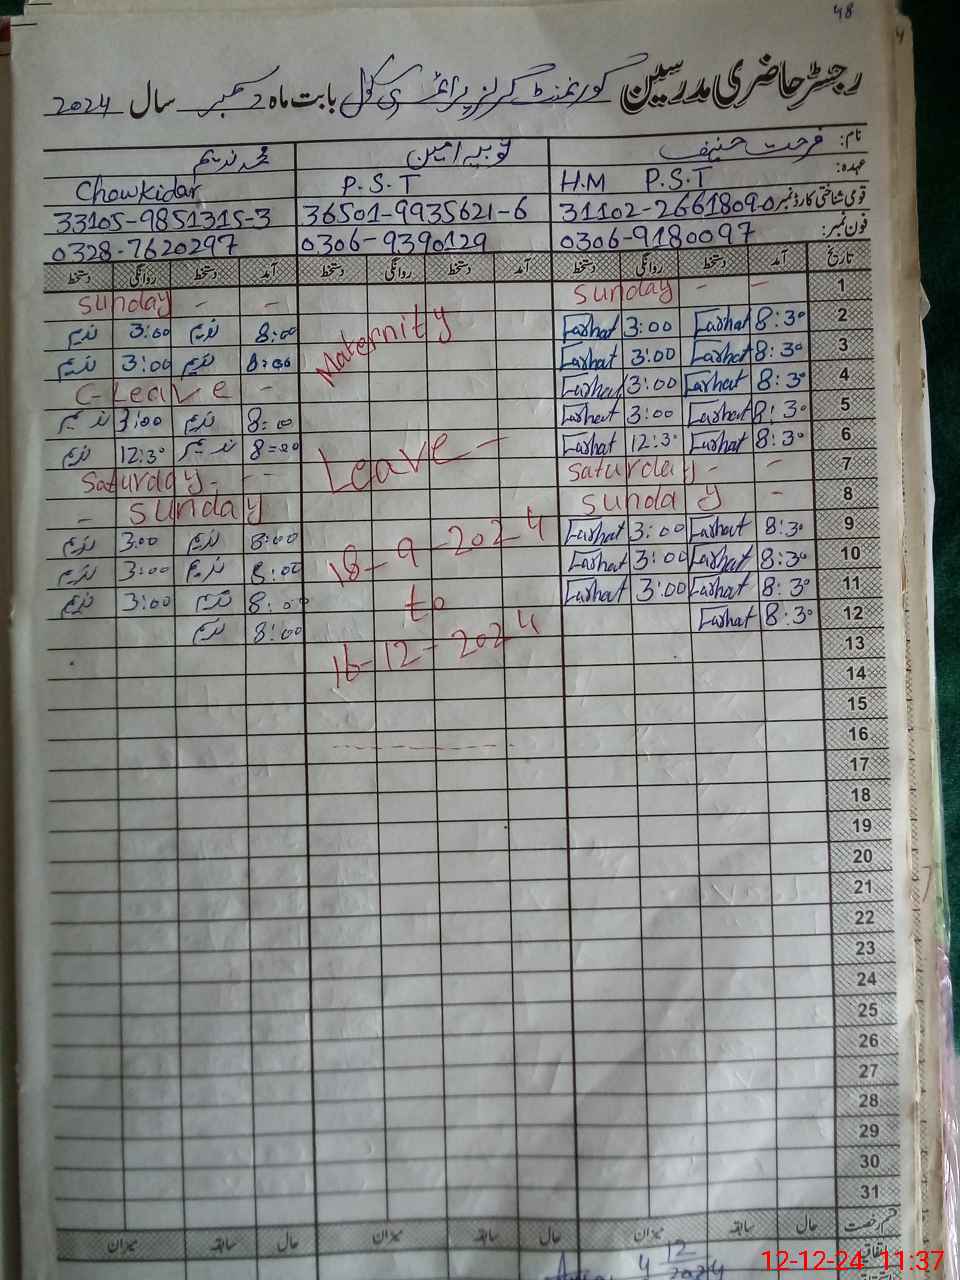 48
رجسٹر حاضری مدرسین گورنمنٹ گرلز پرائمری سکول بابت ماہ دسمبر سال 2024
نام: فرحت حنیف ثوبیہ امین محمد ندیم
عہدہ: H.M P.S.T P.S.T Chowkidar
قومی شناختی کارڈ نمبر 31102-2661809-0 36501-9935621-6 33105-9851315-3
فون نمبر: 0306-9180097 0306-9390129 0328-7620297
تاریخ آمد دستخط روانگی دستخط آمد دستخط روانگی دستخط آمد دستخط روانگی دستخط
1 Sunday - - Sunday - -
2 8:30 Farhat 3:00 Farhat Maternity 8:00 ندیم 3:00 ندیم
3 8:30 Farhat 3:00 Farhat 8:00 ندیم 3:00 ندیم
4 8:30 Farhat 3:00 Farhat C-Leave -
5 8:30 Farhat 3:00 Farhat 8:00 ندیم 3:00 ندیم
6 8:30 Farhat 12:30 Farhat Leave - 8:00 ندیم 12:30 ندیم
7 Saturday - - Saturday - -
8 Sunday - - Sunday
9 8:30 Farhat 3:00 Farhat 18-9-2024 8:00 ندیم 3:00 ندیم
10 8:30 Farhat 3:00 Farhat 8:00 ندیم 3:00 ندیم
11 8:30 Farhat 3:00 Farhat to 8:00 ندیم 3:00 ندیم
12 8:30 Farhat 8:00 ندیم
13 16-12-2024
14
15
16
17
18
19
20
21
22
23
24
25
26
27
28
29
30
31
قسم رخصت حال سابقہ میزان حال سابقہ میزان حال سابقہ میزان
اتفاقیہ
12
2024
12-12-24 11:37